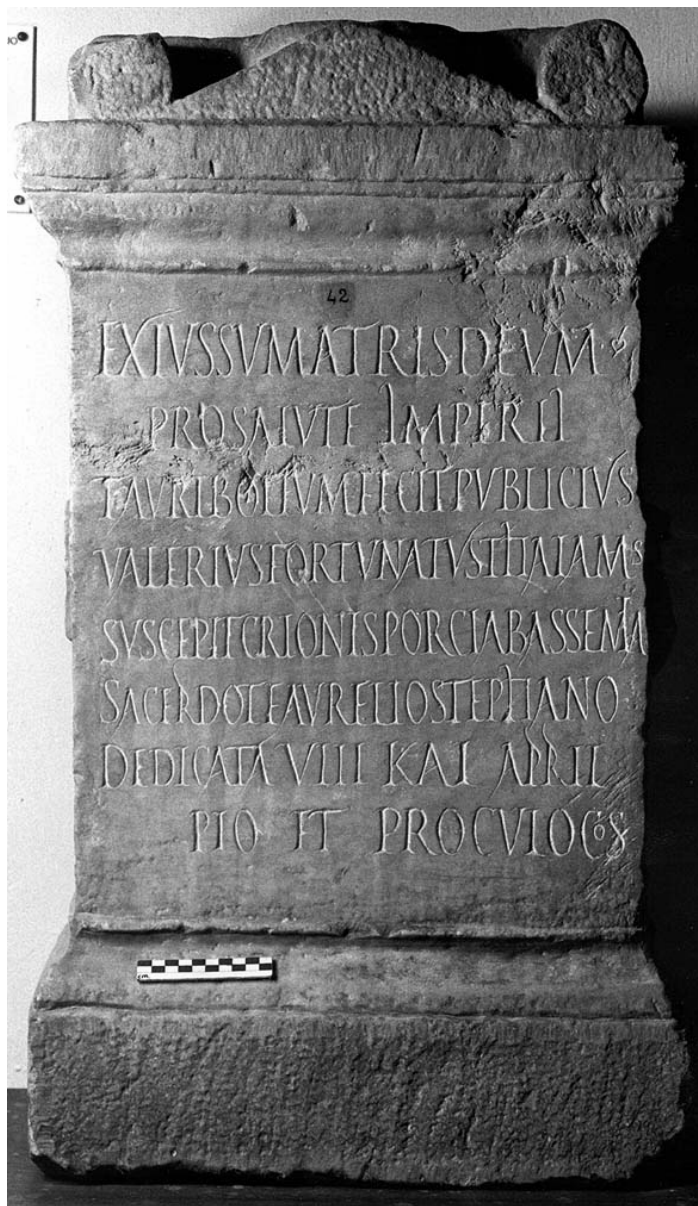 42
EX IVSSV MATRIS DEVM
PRO SALVTE IMPERII
TAVRIBOLIVM FECIT PVBLICIVS
VALERIVS FORTVNATVS THALAMAS
SVSCEPIT CRIONIS PORCIA BASSEMIA
SACERDOTE AVRELIO STEPHANO
DEDICATA VIII KAL APRIL
PIO ET PROCVLO COS
cm